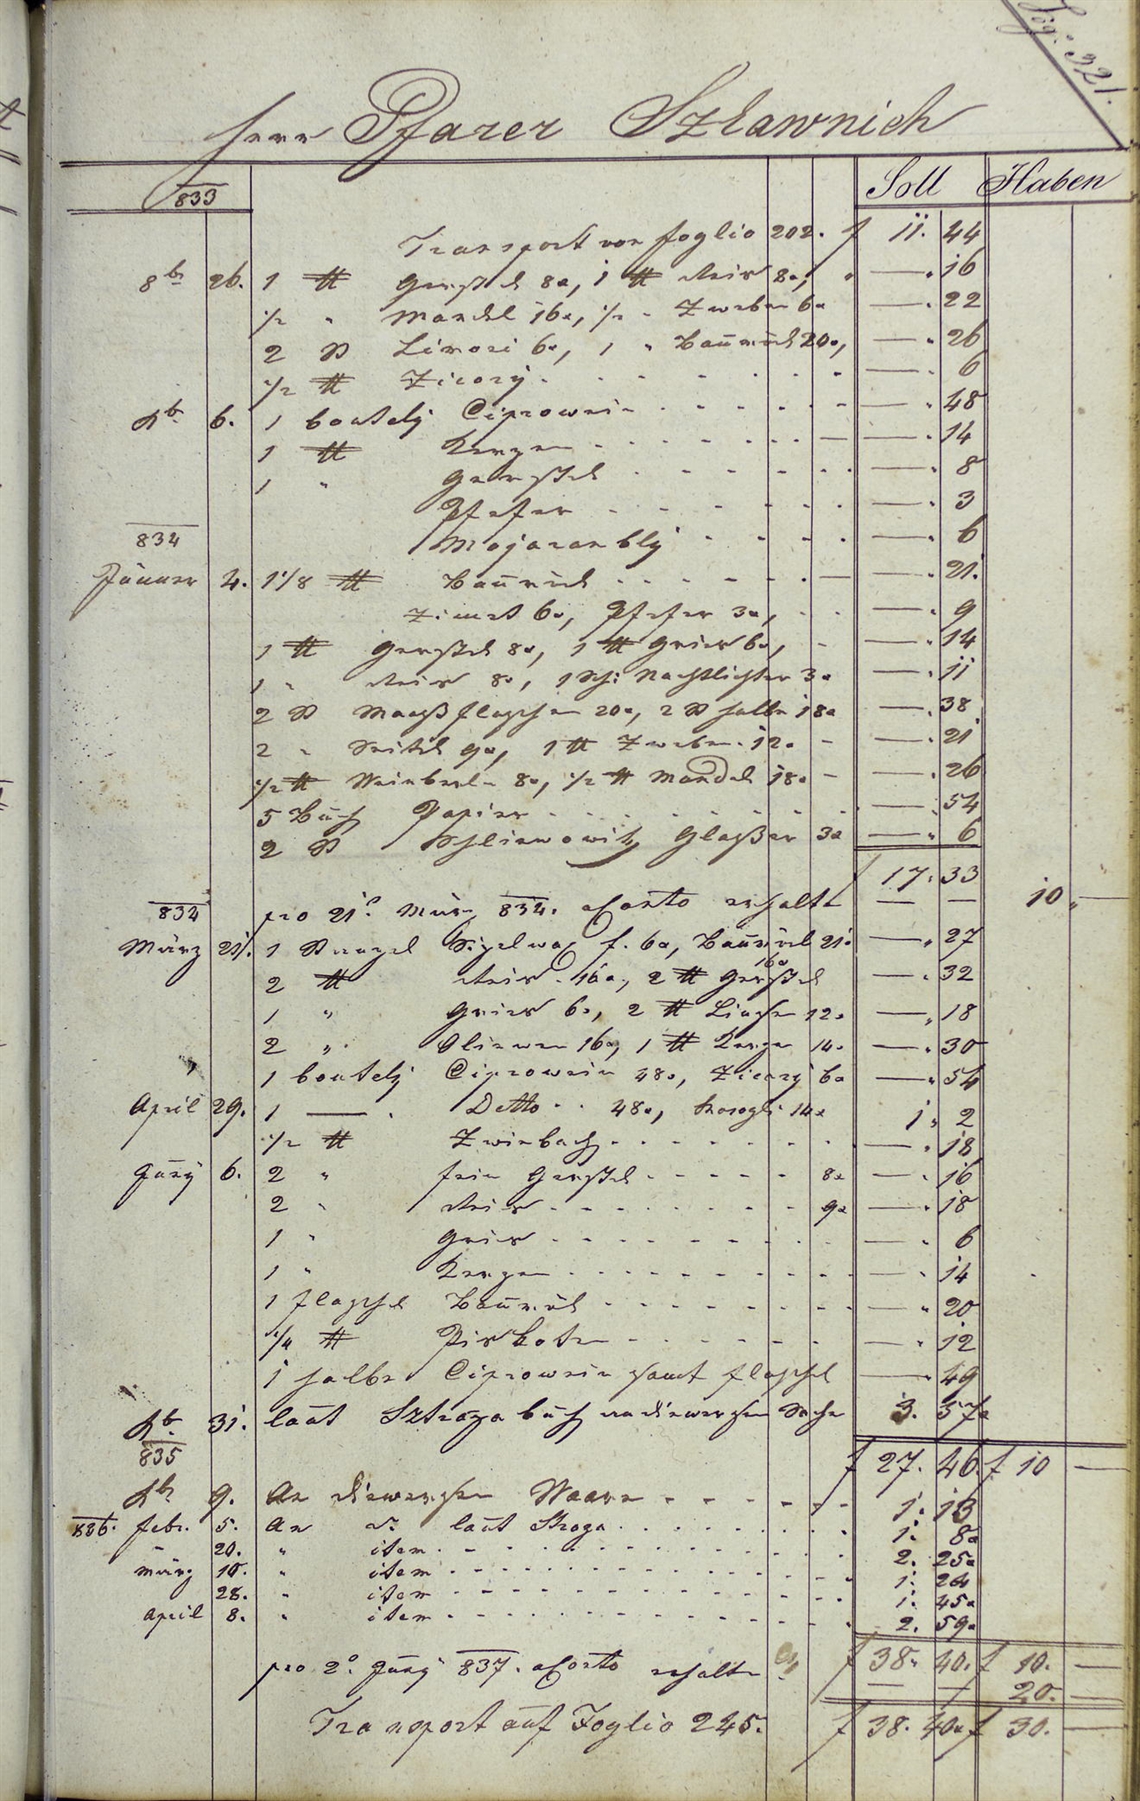 Fog: 321.
Herr Pfarer Szlawnich
833 Soll Haben
Transport von Foglio 202. f 11. 44
8br 26. 1 ℔ Gerstel 8x, 1 ℔ Reis 8x, — 16
1/2 " Mandel 16x, 1/2 " Zweben 6x — 22
2 St Limoni 6x, 1 " Baumöl 20x, — 26
1/2 ℔ Zicory — 6
Xbr 6. 1 boutely Ciprowein — 48
1 ℔ Kerzen — 14
1 " Gerstel — 8
Pfefer — 3
834 Majaranbly — 6
Jänner 4. 1 1/8 ℔ Baumöl — 21.
Zimet 6x, Pfefer 3x, — 9
1 ℔ Gerstel 8x, 1 ℔ Gries 6x, — 14
1 " Reis 8x, 1 Sch: Nachtlichter 3x — 11
2 St Maaß flaschen 20x, 2 St halbe 18x — 38
2 " Seitel 9x, 1 ℔ Zweben 12x — 21
1/2 ℔ Weinberln 8x, 1/2 ℔ Mandel 18x — 26
5 Buch Papier — 54
2 St Schliwowitz Glaßer 3x — 6
f 17. 33
834 pro 21o März 834. aConto erhalten — — 10 —
März 21. 1 Stangel Sigelwax f. 6x, Baumöl 21x — 27
2 ℔ Reis 16x, 2 ℔ Gerstel 16x — 32
1 " Gries 6x, 2 ℔ Linsen 12x — 18
2 " Oliwen 16x, 1 ℔ Kerzen 14x — 30
1 boutely Ciprowein 48x, Zicory 6x — 54
April 29. 1 — Detto 48x, Rosogli 14x 1. 2
1/2 ℔ Zwiebach — 18
Juny 6. 2 " fein Gerstel 8x — 16
2 " Reis 9x — 18
1 " Gries — 6
1 " Kerzen — 14
1 flaschel Baumöl — 20
1/4 ℔ Piskoten — 12
1 halbe Ciprowein samt flaschel — 49
Xbr 31. laut Sztrazabuch an diewersen Sachen 3. 57x
835 f 27. 46. f 10 —
Xbr 9. An diewersen Waaren 1. 13
836. Febr. 5. An do laut Straza 1. 8x
20. " item 2. 25x
März 10. " item 1. 24
28. " item 1. 45x
April 8. " item 2. 59x
f 38. 40. f 10. —
pro 2o Juny 837. aConto erhalten — — 20. —
Transport auf Foglio 245. f 38. 40x f 30. —